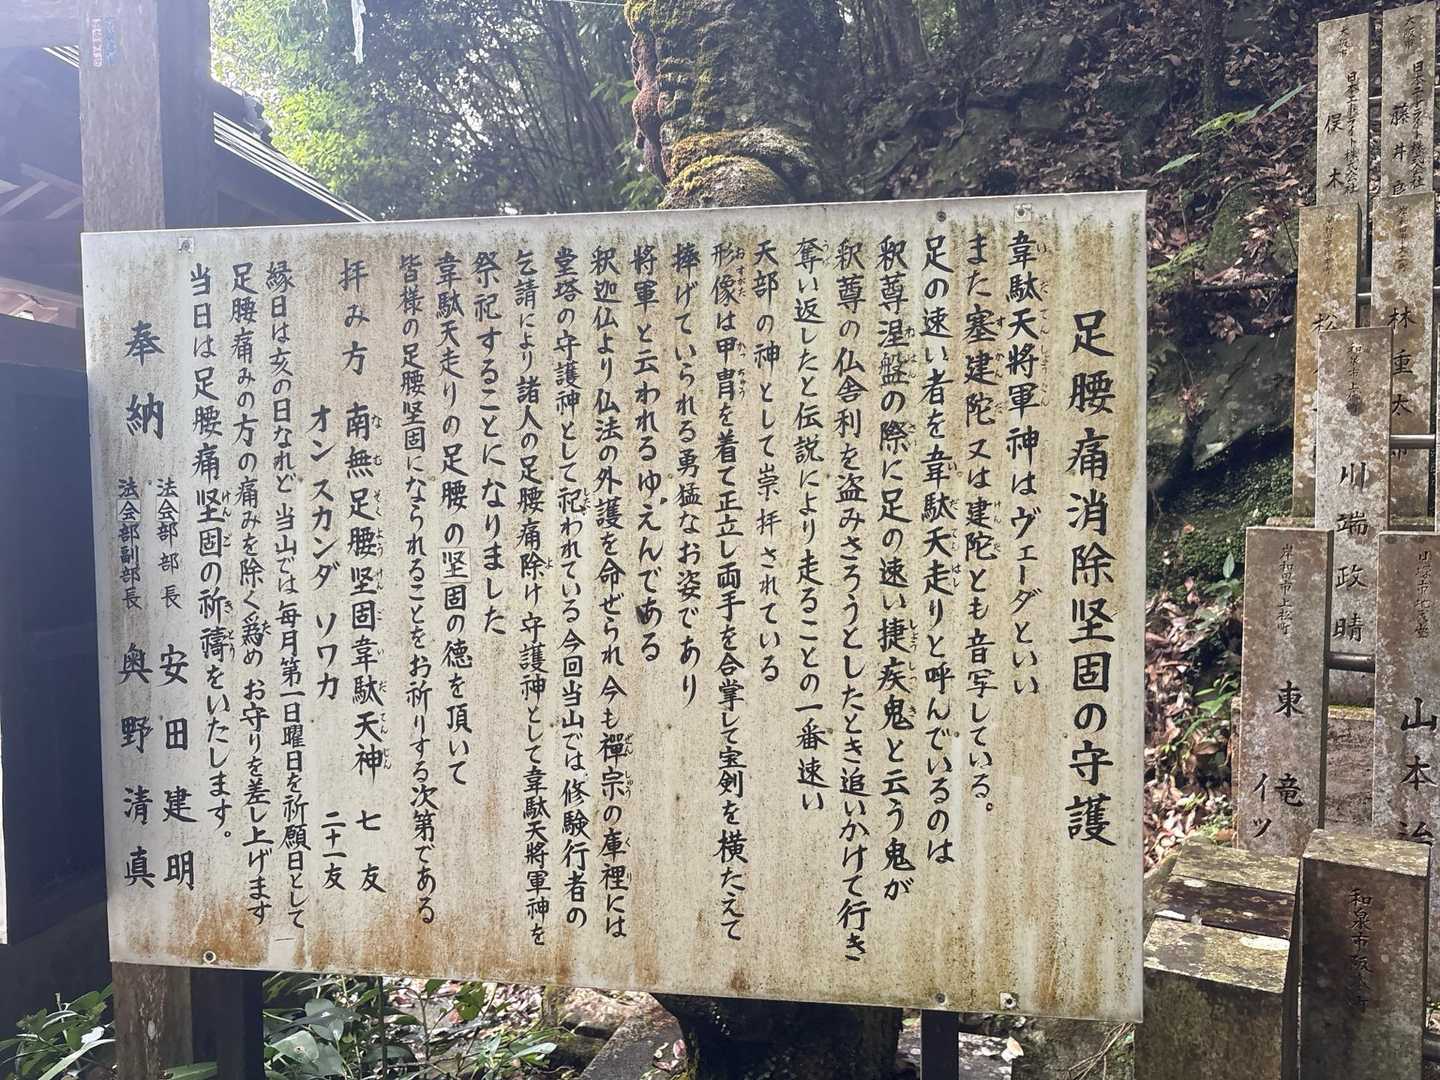 足腰痛消除堅固の守護
韋駄天将軍神はヴェーダといい
また塞建陀又は建陀とも音写している。
足の速い者を韋駄天走りと呼んでいるのは
釈尊涅盤の際に足の速い捷疾鬼と云う鬼が
釈尊の仏舎利を盗みさろうとしたとき追いかけて行き
奪い返したと伝説により走ることの一番速い
天部の神として崇拝されている
形像は甲冑を着て正立し両手を合掌して宝剣を横たえて
捧げていられる勇猛なお姿であり
将軍と云われるゆえんである
釈迦仏より仏法の外護を命ぜられ今も禪宗の庫裡には
堂塔の守護神として祀われている今回当山では修験行者の
乞請により諸人の足腰痛除け守護神として韋駄天将軍神を
祭祀することになりました
韋駄天走りの足腰の堅固の徳を頂いて
皆様の足腰堅固になられることをお祈りする次第である
拝み方 南無足腰堅固韋駄天神 七友
オンスカンダ ソワカ 二十一友
縁日は亥の日なれど当山では毎月第一日曜日を祈願日として
足腰痛みの方の痛みを除く為め お守りを差し上げます
当日は足腰痛堅固の祈禱をいたします。
奉納 法会部部長 安田建明
法会部副部長 奥野清真
大阪市
藤井
大阪市
俣木
林重太
松
和泉市
川端政晴
山本
岸和田市上松町
東竜
和泉市